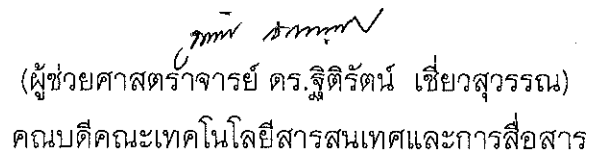 (ผู้ช่วยศาสตราจารย์ ดร.ฐิติรัตน์ เชี่ยวสุวรรณ)
คณบดีคณะเทคโนโลยีสารสนเทศและการสื่อสาร